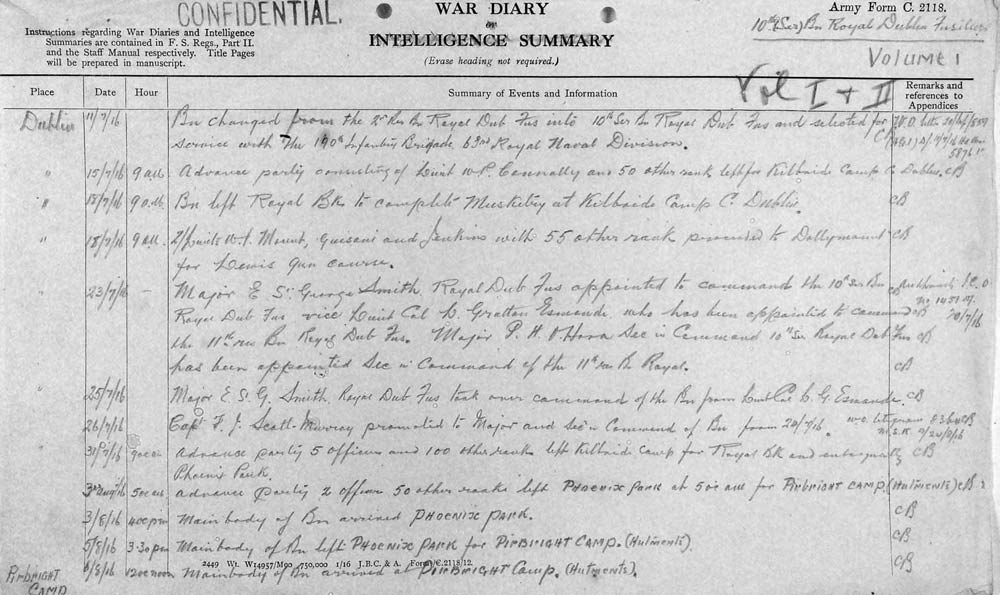 CONFIDENTIAL.
WAR DIARY
or
INTELLIGENCE SUMMARY
(Erase heading not required.)
Army Form C. 2118.
10th (Ser) Bn Royal Dublin Fusiliers
VOLUME 1
Vol I + II
Instructions regarding War Diaries and Intelligence
Summaries are contained in F. S. Regs., Part II.
and the Staff Manual respectively. Title Pages
will be prepared in manuscript.
Place Date Hour Summary of Events and Information Remarks and
references to
Appendices
Dublin 11/7/16 Bn changed from the Bn Royal Dub Fus into 10th Ser Bn Royal Dub Fus and selected for
service with the 190th Infantry Brigade 63rd Royal Naval Division.
" 15/7/16 9 a.m. Advance party consisting of Lieut Connolly and 50 other rank left for Kilbride Camp C. Dublin. CB
" 18/7/16 9 a.m. Bn left Royal Bks to complete Musketry at Kilbride Camp C. Dublin. CB
" 18/7/16 9 a.m. 2/Lieuts Mount, and Jenkins with 55 other rank proceeded to Dollymount CB
for Lewis Gun course.
" 23/7/16 — Major E St George Smith, Royal Dub Fus appointed to command the 10th Ser Bn
Royal Dub Fus vice Lieut Col L. Gratton Esmonde who has been appointed to command CB
the 11th Res Bn Royal Dub Fus. Major P. H. O'Hara Sec in Command 10th Ser Royal Dub Fus CB
has been appointed Sec in Command of the 11th Res Bn Royal. CB
" 25/7/16 Major E. S. G. Smith, Royal Dub Fus took over command of the Bn from Lieut Col L. G. Esmonde. CB
26/7/16 Capt F. J. Scott-Murray promoted to Major and Sec in Command of Bn from 24/7/16.
31/7/16 9.00 am advance party 5 officers and 100 other ranks left Kilbride Camp for Royal Bk and CB
Phoenix Park.
3rd Aug/16 5.0 am advance party 2 officers 50 other ranks left PHOENIX PARK at 5.0 am for PIRBRIGHT CAMP. (Hutments) CB
3/8/16 4.00 pm Main body of Bn arrived PHOENIX PARK. CB
5/8/16 3.30 pm Main body of Bn left PHOENIX PARK for PIRBRIGHT CAMP. (Hutments). CB
PIRBRIGHT
CAMP 6/8/16 12.00 noon Main body of Bn arrived at PIRBRIGHT Camp. (Hutments). CB
2449 Wt. W14957/M90 750,000 1/16 J.B.C. & A. Forms/C.2118/12.